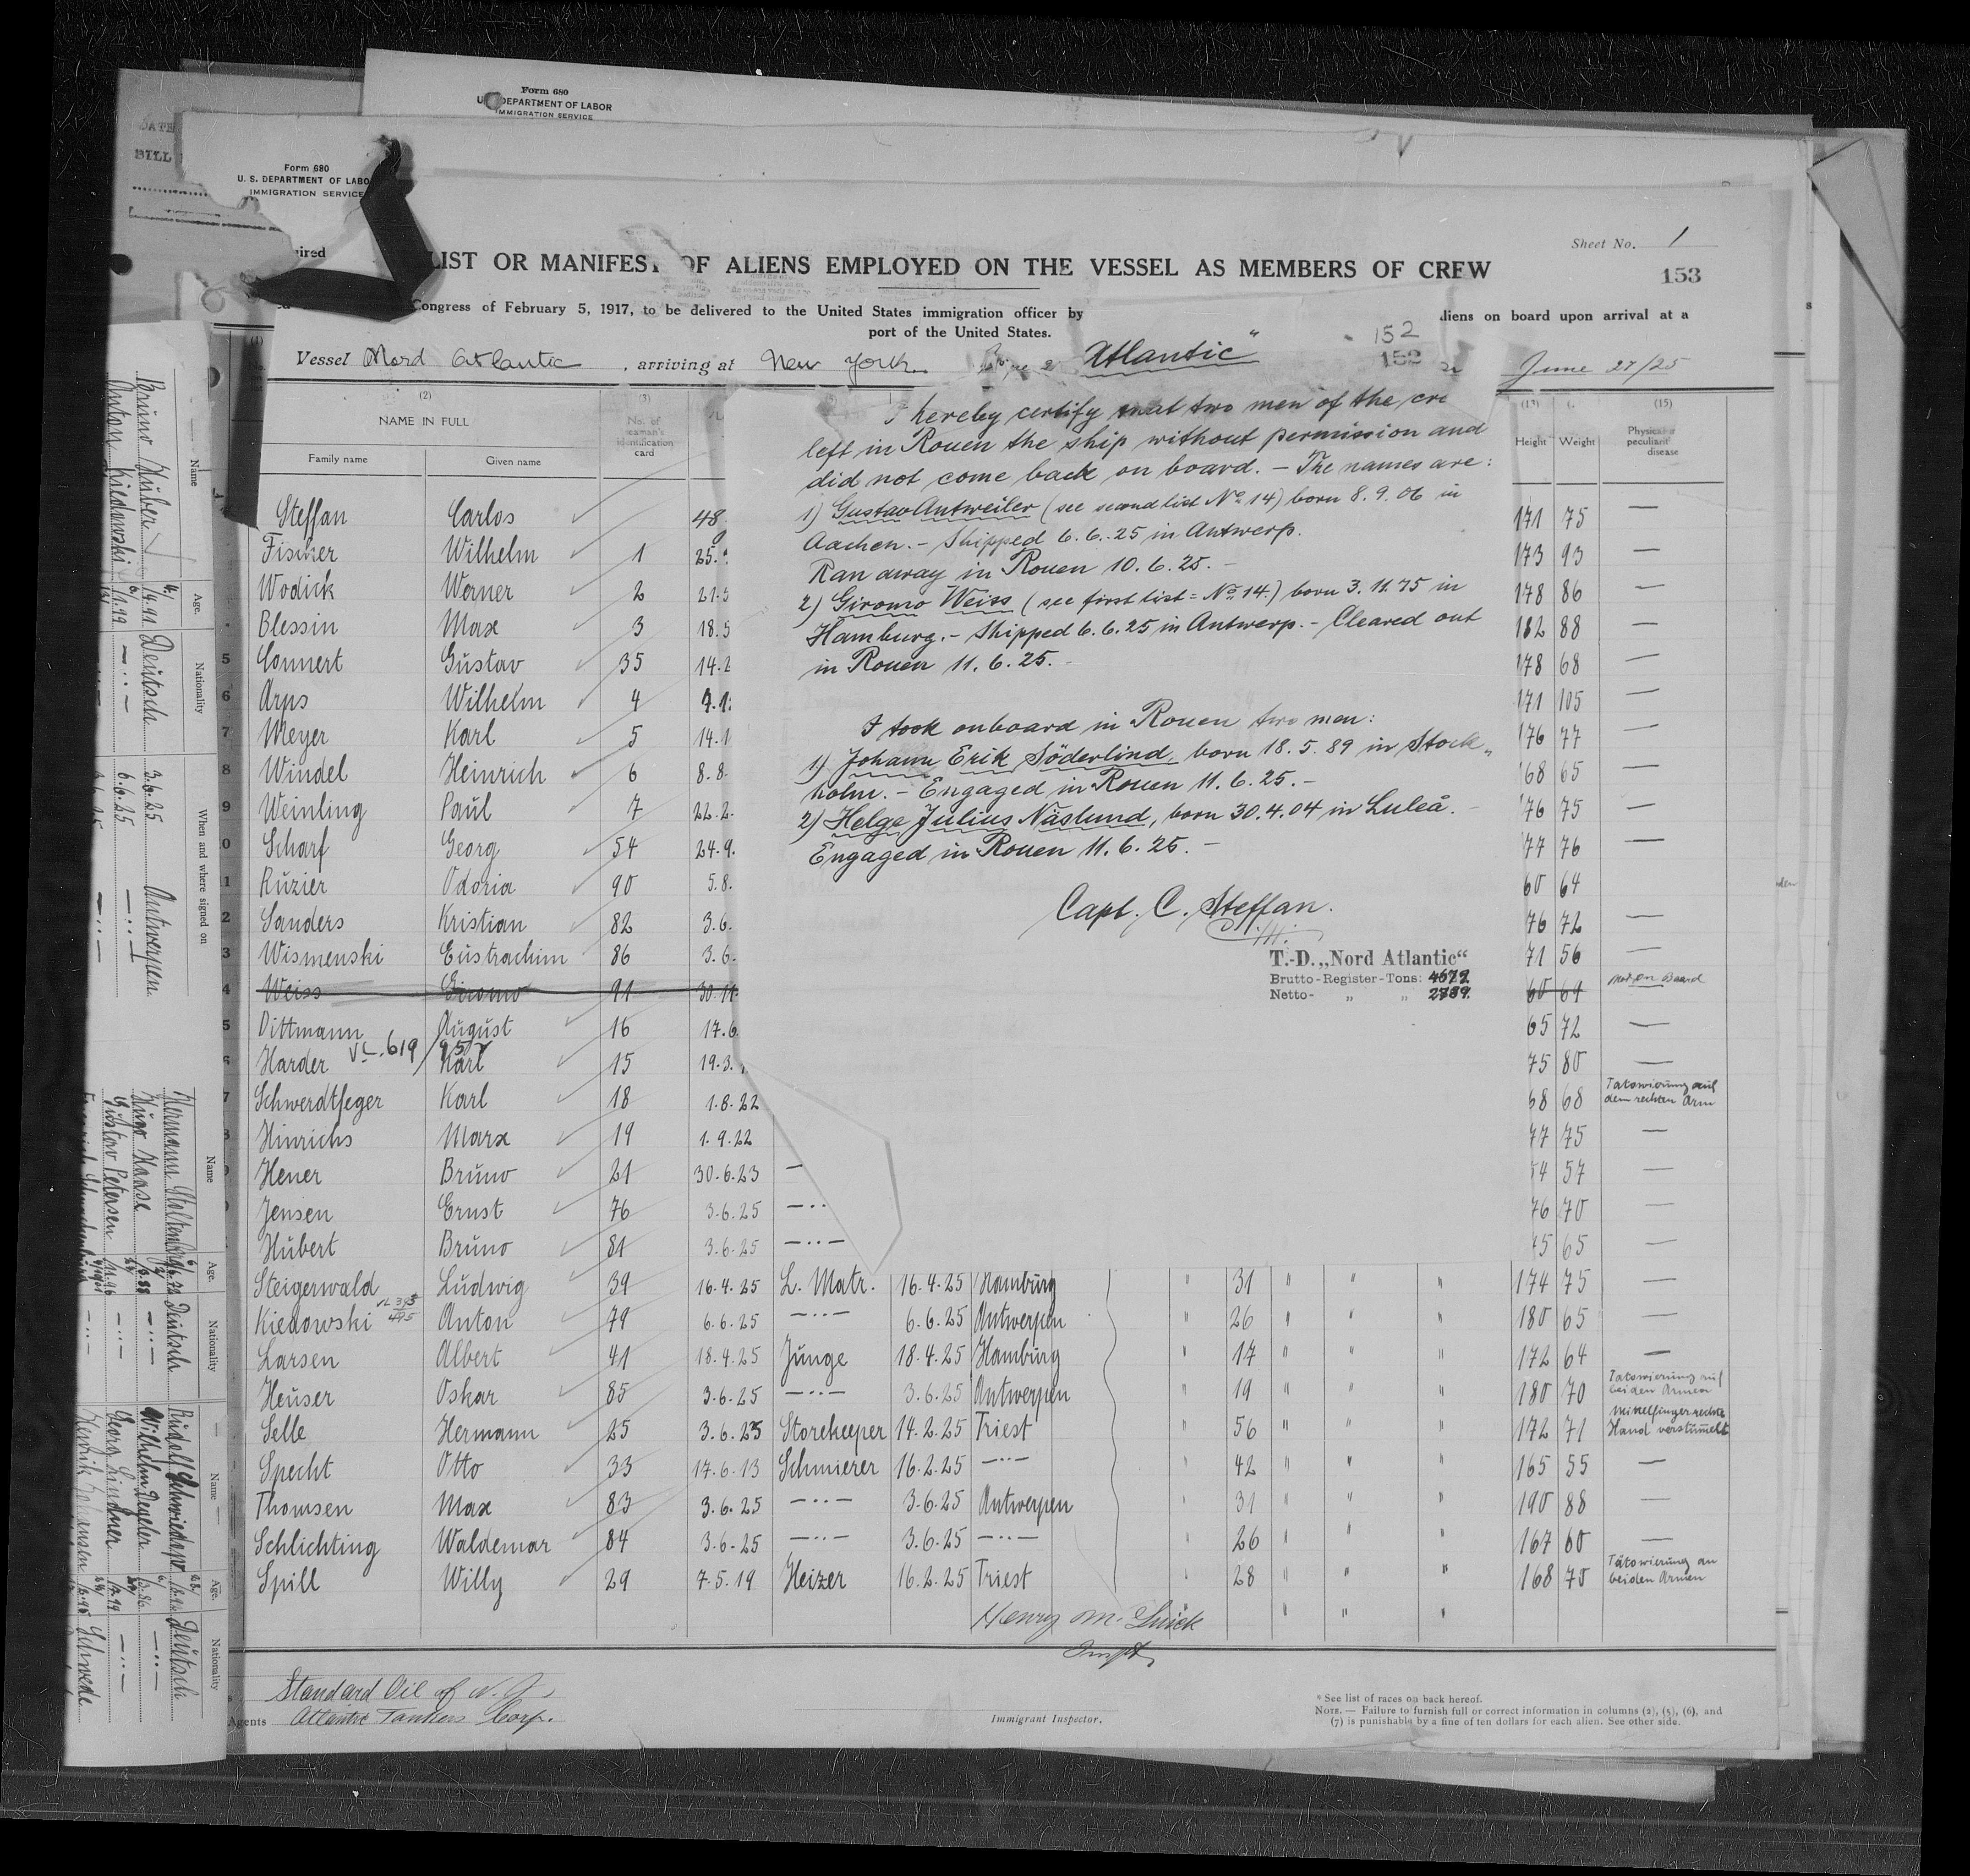 Form 680
U. S. DEPARTMENT OF LABOR
IMMIGRATION SERVICE
Form 680
U. S. DEPARTMENT OF LABO
IMMIGRATION SERVICE
Sheet No. 1
LIST OR MANIFEST OF ALIENS EMPLOYED ON THE VESSEL AS MEMBERS OF CREW
153
Congress of February 5, 1917, to be delivered to the United States immigration officer by
liens on board upon arrival at a
port of the United States.
Vessel Nord Atlantic, arriving at New York
June 27/25
152
152
Atlantic"
I hereby certify that two men of the cre
left in Rouen the ship without permission and
did not come back on board. — The names are:
1) Gustav Antweiler (see second list No 14) born 8. 9. 06 in
Aachen. — Shipped 6. 6. 25 in Antwerp.
Ran away in Rouen 10. 6. 25. —
2) Giromo Weiss (see first list = No 14.) born 3. 11. 75 in
Hamburg. — Shipped 6. 6. 25 in Antwerp. — Cleared out
in Rouen 11. 6. 25. —
I took onboard in Rouen two men:
1) Johann Erik Söderlind, born 18. 5. 89 in Stock„
holm. — Engaged in Rouen 11. 6. 25. —
2) Helge Julius Näslund, born 30. 4. 04 in Luleå.
Engaged in Rouen 11. 6. 25. —
Capt. C. Steffan.
T.-D. „Nord Atlantic“
Brutto-Register-Tons: 4672
Netto- „ „ 2789.
(2) (3) (13) (15)
NAME IN FULL
No. of seaman's identification card
Family name Given name
Height Weight
Physical peculiarit disease
Steffan Carlos 48. 171 75 —
Fischer Wilhelm 1 25. 173 93 —
Wodick Werner 2 21.3 178 86 —
Blessin Max 3 18.5 182 88 —
5 Connert Gustav 35 14.2 178 68 —
6 Arps Wilhelm 4 171 105 —
7 Meyer Karl 5 14.1 176 77 —
8 Windel Heinrich 6 8.8. 68 65 —
9 Weinling Paul 7 22.2. 76 75 —
0 Scharf Georg 54 24.9. 77 76 —
1 Ruzier Odoria 90 5.8. 60 64
2 Sanders Kristian 82 3.6. 76 72 —
3 Wismenski Eustrachim 86 3.6. 71 56 —
4 Weiss Giromo 91 30.11 60 69 Not on Board
5 Dittmann August 16 17.6. 65 72 —
6 Harder Karl 15 19.3. 75 80 —
7 Schwerdtfeger Karl 18 1.8.22 68 68 Tatowierung auf dem rechten Arm
Hinrichs Marx 19 1.9.22 77 75 —
Hener Bruno 21 30.6.23 — 54 57 —
Jensen Ernst 76 3.6.25 —..— 76 70 —
Hubert Bruno 81 3.6.25 —..— 45 65 —
Steigerwald Ludwig 39 16.4.25 L. Matr. 16.4.25 Hamburg " 31 " " " 174 75 —
Kiedowski Anton 79 6.6.25 —..— 6.6.25 Antwerpen " 26 " " " 180 65 —
Larsen Albert 41 18.4.25 Junge 18.4.25 Hamburg " 17 " " " 172 64 —
Heuser Oskar 85 3.6.25 —..— 3.6.25 Antwerpen " 19 " " " 180 70 Tatowierung auf beiden Armen
Selle Hermann 25 3.6.25 Storekeeper 14.2.25 Triest " 56 " " " 172 71 Mittelfinger rechte Hand verstümelt
Specht Otto 33 17.6.13 Schmierer 16.2.25 —..— " 42 " " " 165 55 —
Thomsen Max 83 3.6.25 —..— 3.6.25 Antwerpen " 31 " " " 190 88 —
Schlichting Waldemar 84 3.6.25 —..— 3.6.25 —..— " 26 " " " 167 60 —
Spill Willy 29 7.5.19 Heizer 16.2.25 Triest " 28 " " " 168 70 Tätowierung an beiden Armen
Standard Oil of N. J.
Agents Atlantic Tankers Corp.
Immigrant Inspector.
* See list of races on back hereof.
NOTE. — Failure to furnish full or correct information in columns (2), (5), (6), and
(7) is punishable by a fine of ten dollars for each alien. See other side.
Name Age. Nationality When and where signed on
Bruno Huber Deutsch 3.6.25 Antwerpen
Anton Kiedowski —..— 6.6.25 —..—
Name Age. Nationality
Hugo Haase —..—
Gustav Petersen —..—
Name Age. Nationality
Wilhelm —..—
Georg Lindner —..—
Schwede